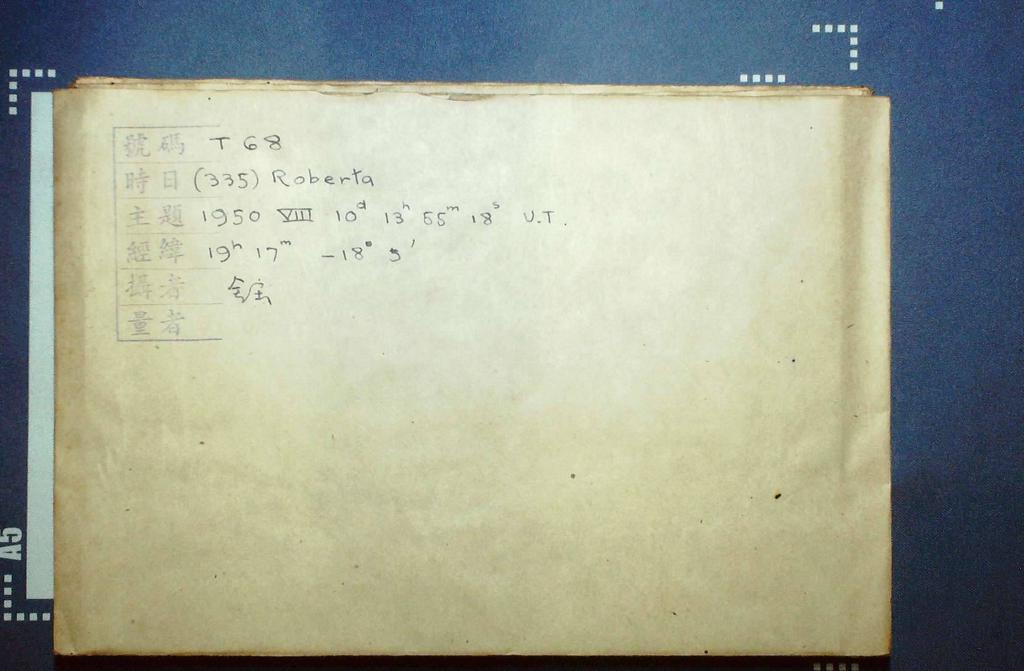 號碼 T 68
時日 (335) Roberta
主題 1950 VIII 10ᵈ 13ʰ 55ᵐ 18ˢ U.T.
經緯 19ʰ 17ᵐ -18° 5'
攝者
量者
A5